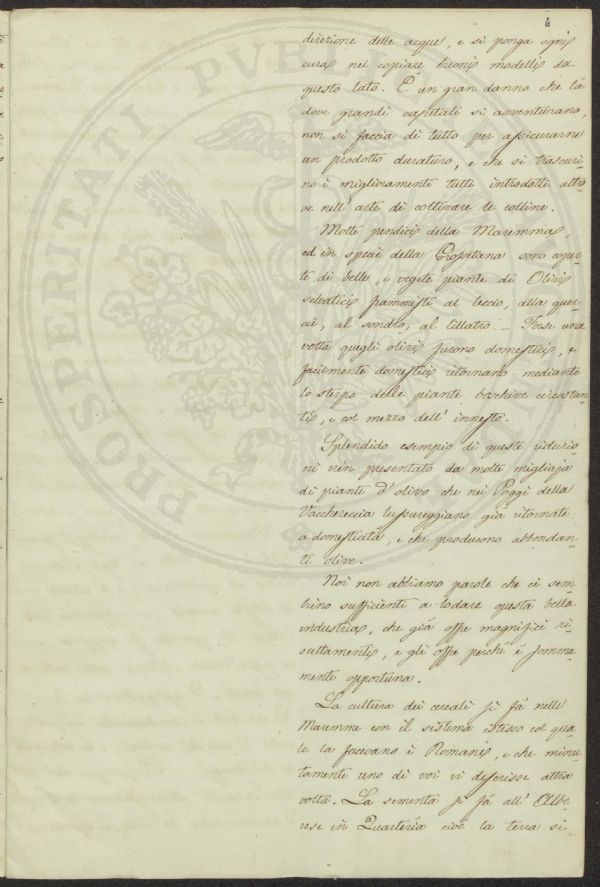 6
direzione delle acque, e si ponga ogni
cura nel copiare buoni modelli da
questo lato. È un gran danno che là
dove grandi capitali si avventurano,
non si faccia di tutto per assicurarne
un prodotto duraturo, e che si trascuri-
no i miglioramenti tutti introdotti altro-
ve nell' arte di coltivare le colline.
Molte pendici della Maremma,
ed in specie della Grossetana sono coper-
te di belle, e vegete piante di Olivi
selvatici frammisti al leccio, alla quer-
cie, al sondro, al lillatro. — Forse una
volta quegli olivi furono domestici, e
facilmente domestici ritornano mediante
lo sterpo delle piante boschive circostan
ti, e col mezzo dell' innesto.
Splendido esempio di queste riduzio
ni vien presentato da molte migliaja
di piante d' olivo che nei Poggi della
Vacchereccia lussureggiano già ritornate
a domesticità, e che producono abbondan-
ti olive.
Noi non abbiamo parole che ci sem
brino sufficienti a lodare questa bella
industria, che già offre magnifici ri-
sultamenti, e gli offre perchè è somma-
mente opportuna.
La cultura dei cereali si fà nelle
Maremme con il sistema istesso col qua
le la facevano i Romani, e che minu-
tamente uno di voi vi descrisse altra
volta. La sementa si fà all' Albe-
rese in Quarteria cioè la terra si
PROSPERITATI PVBLICAE